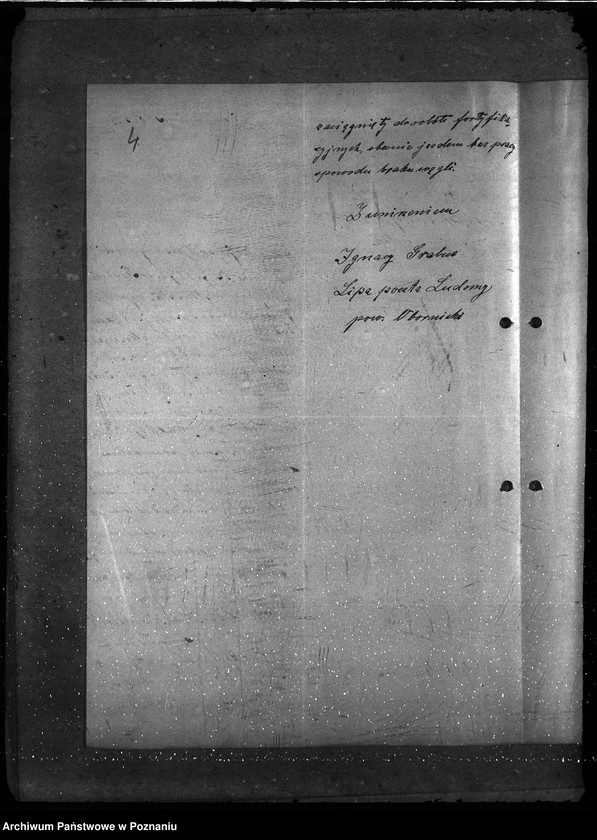 4
zaciągnięty do robót fortyfika-
cyjnych, obecnie jestem bez pracy
spowodu braku węgli.
Z uniżeniem
Ignacy Grabus
Lipa poczta Ludomy
pow. Obornicki
Archiwum Państwowe w Poznaniu